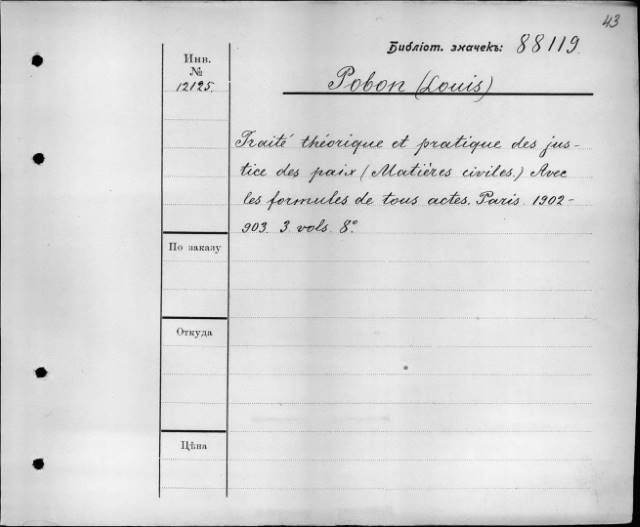 43
Библіот. значекъ: 88119
Инв.
№
12125.
Pobon (Louis)
Traité théorique et pratique des jus-
tice des paix (Matières civiles.) Avec
les formules de tous actes. Paris. 1902-
903. 3 vols. 8°.
По заказу
Откуда
Цѣна